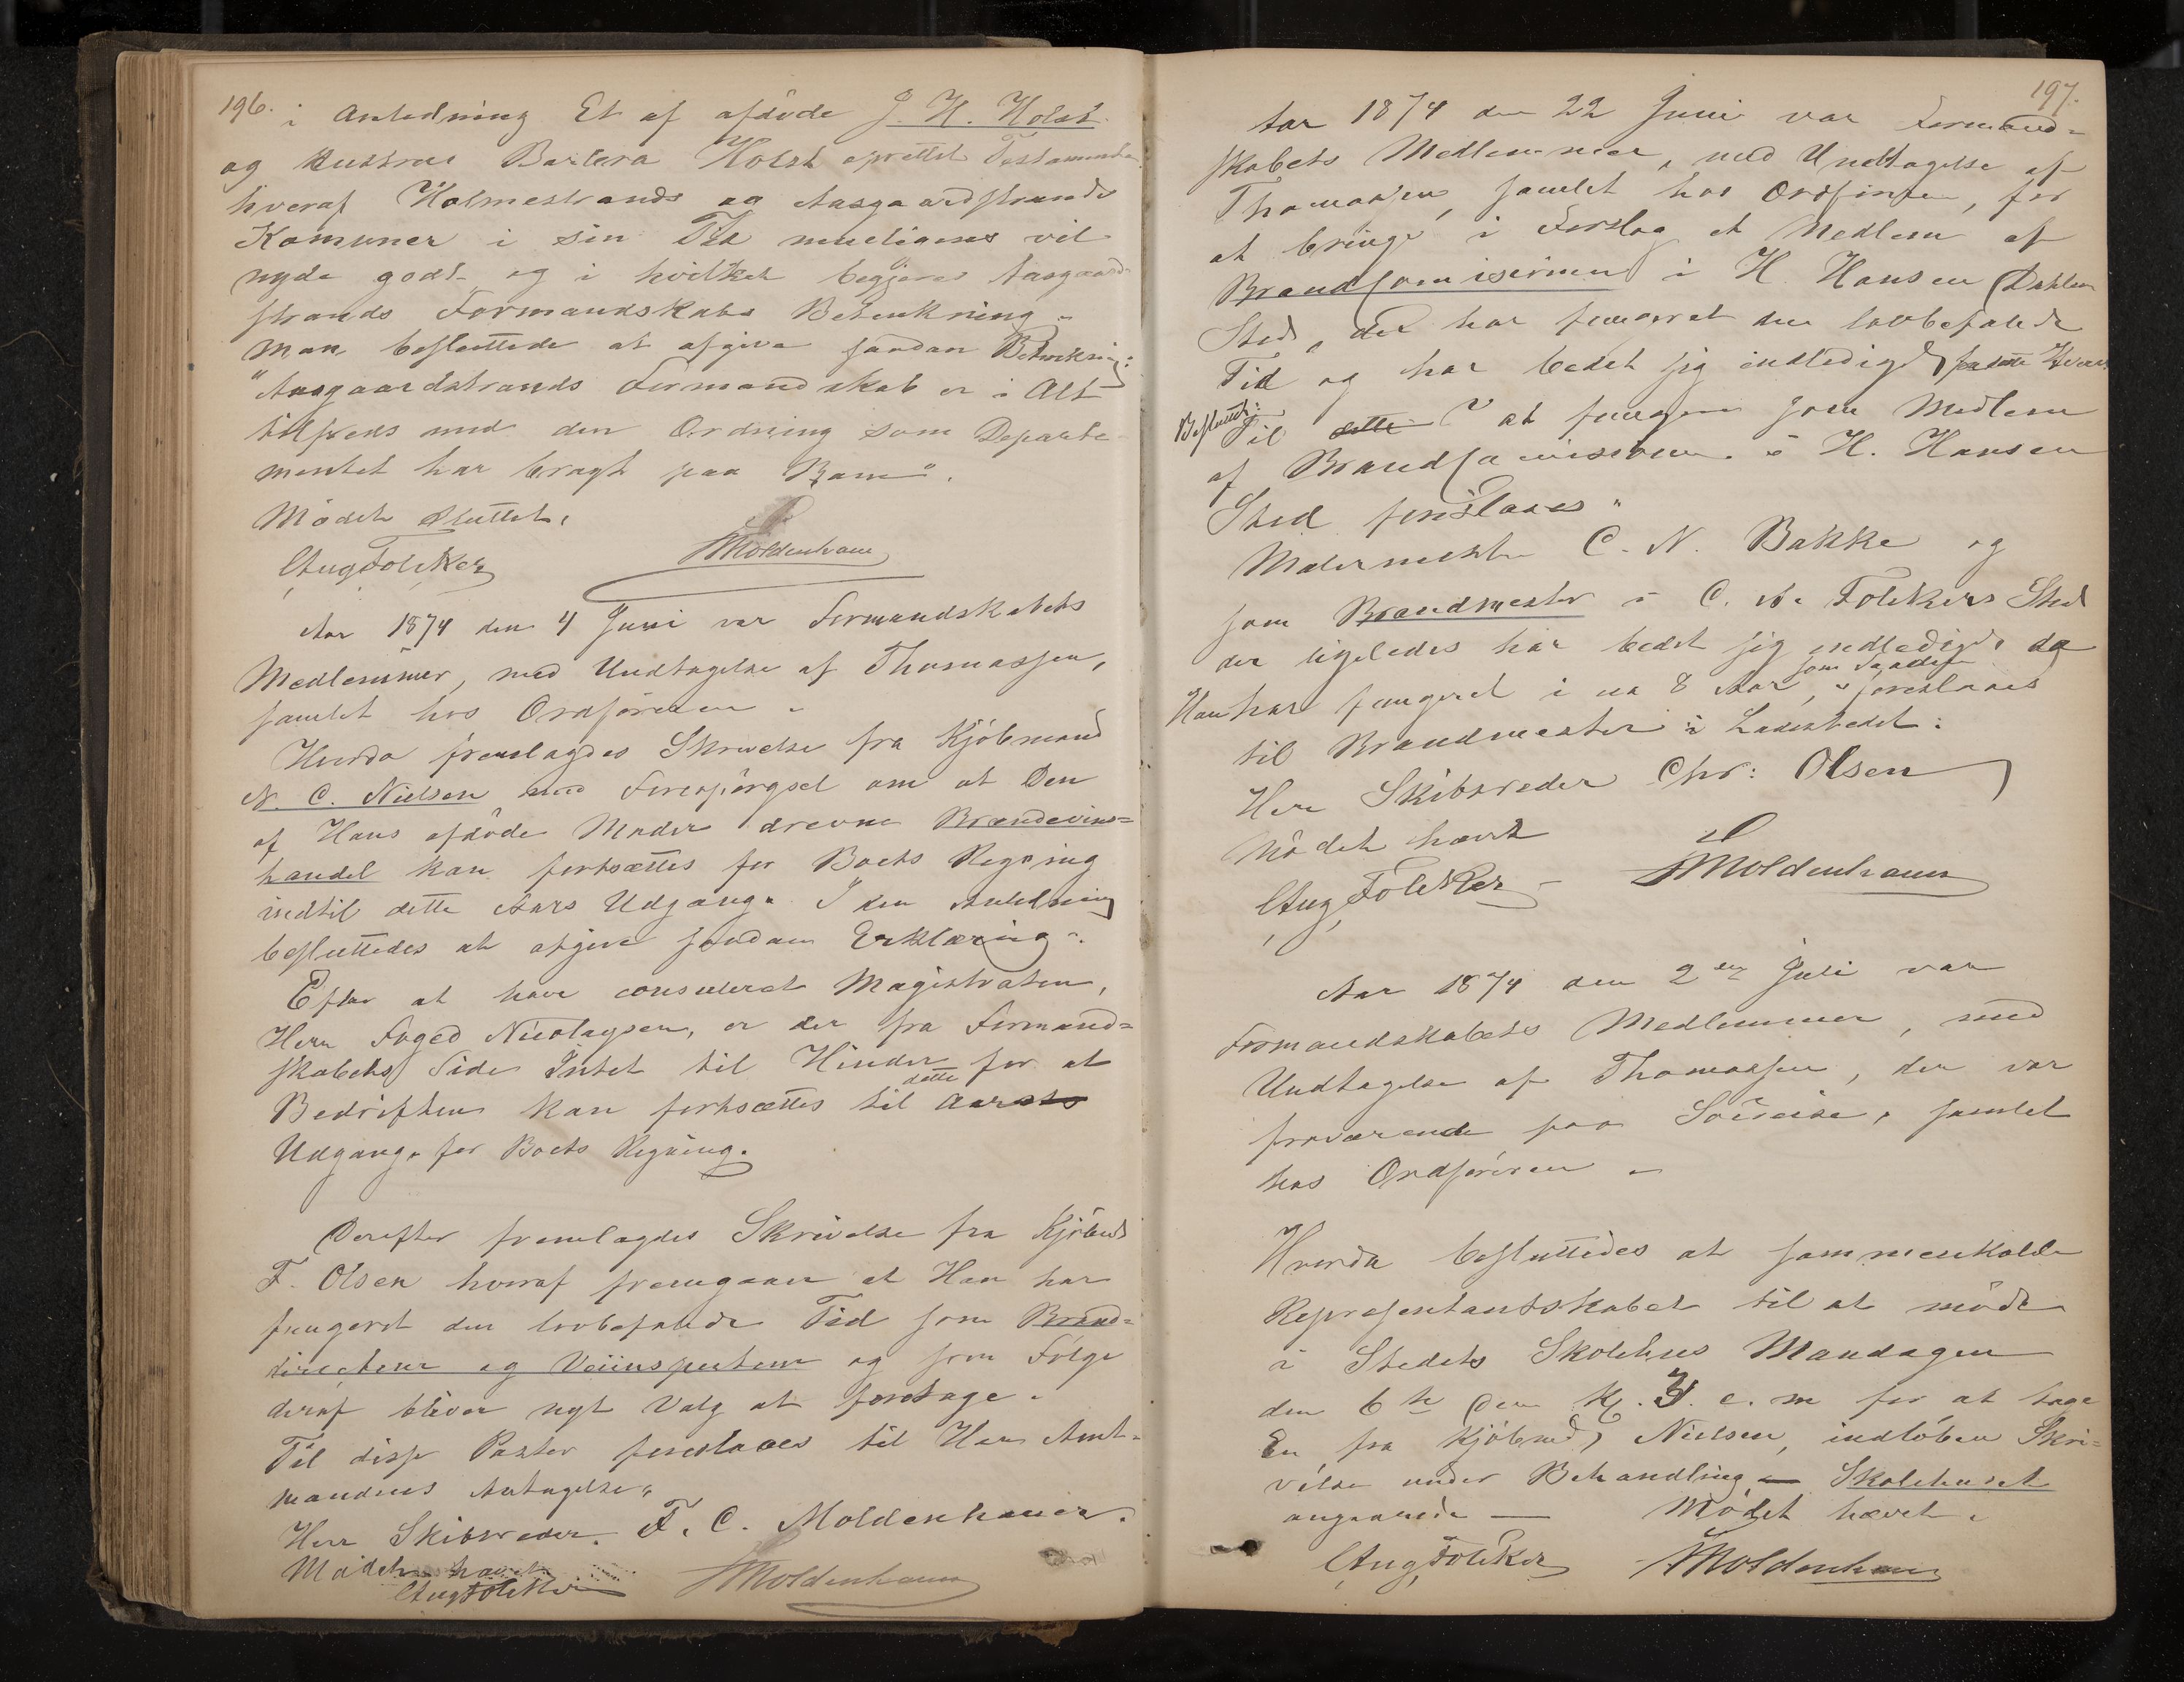 196.
i Anledning Et af afdöde J. H. Holst
og Hustrue Barbra Holst oprettet Testamente
hveraf Holmestrands og Aasgaardstrands
Komuner i sin Tid mueligens vil
nyde godt og i hvilket begjeres Aasgaard-
strands Formandskabs Betenkning.
Man besluttede at afgive saadan Betenkning:
"Aasgaardstrands Formandskab er i Alt
tilfreds med den Ordning som Departe-
mentet har bragt paa Bane".
Mödet sluttet.
Aug Folcker Moldenhauer
Aar 1874 den 4 Juni var Formandskabets
Medlemmer, med Undtagelse af Thomassen,
samlet hos Ordföreren.
Hvorda fremlagdes Skrivelse fra Kjöbmand
N. C. Nielsen med Forespörgsel om at Den
af Hans afdöde Moder drevne Brændevins=
handel kan fortsættes for Boets Regning
indtil dette Aars Udgang. I den Anledning
besluttedes at afgive saadan Erklæring.
Efter at have consuleret Magistraten,
Herr Foged Nicolaysen, er der fra Formand=
skabets Side Intet til Hinder for at
Bedriften kan fortsættes til dette Aarets
Udgang, for Boets Regning.
Derefter fremlagdes Skrivelse fra Kjöbmd
F. Olsen hvoraf fremgaaer at Han har
fungeret den lovbefalede Tid som Brand=
directeur og Veiinspecteur og som Fölge
deraf bliver nyt Valg at foretage.
Til disse Poster foreslaaes til Herr Amt-
mandens Antagelse,
Herr Skibsreder F. C. Moldenhauer.
Mödet hævet
Aug Folcker Moldenhauer
197.
Aar 1874 den 22 Juni var Formand=
skabets Medlemmer, med Undtagelse af
Thomassen, samlet hos Ordföreren, for
at bringe i Forslag et Medlem af
Brandcomisionen i H Hansen Dahlens
Sted, der har fungeret den lovbefalede
Tid og har bedet sig entlediget
Besluttet:
Til dette at fungere som Medlem
af Brandcomissionen i H. Hansen
Sted foreslaaes
Malermester C. N. Bakke og
som Brandmester i C. N. Folckers Sted
der ligeledes har bedet sig entlediget da
Han har fungeret i ca 8 Aar, som saadan foreslaaes
til Brandmester i Ladestedet:
Herr Skibsreder Chr: Olsen
Mödet hævet
Aug Folcker Moldenhauer
Aar 1874 den 2den Juli var
Formandskabets Medlemmer, med
Undtagelse af Thomassen, der var
fraværende paa Söereise, samlet
hos Ordföreren
Hvorda besluttedes at sammenkalde
Repræsentantskabet til at möde
i Stedets Skolehus Mandagen
den 6te Den Kl. 7 e. m for at tage
En, fra Kjöbmd Nielsen, indlöben Skri=
velse under Behandling Skolehuset
angaaende — Mödet hævet.
Aug Folcker Moldenhauer